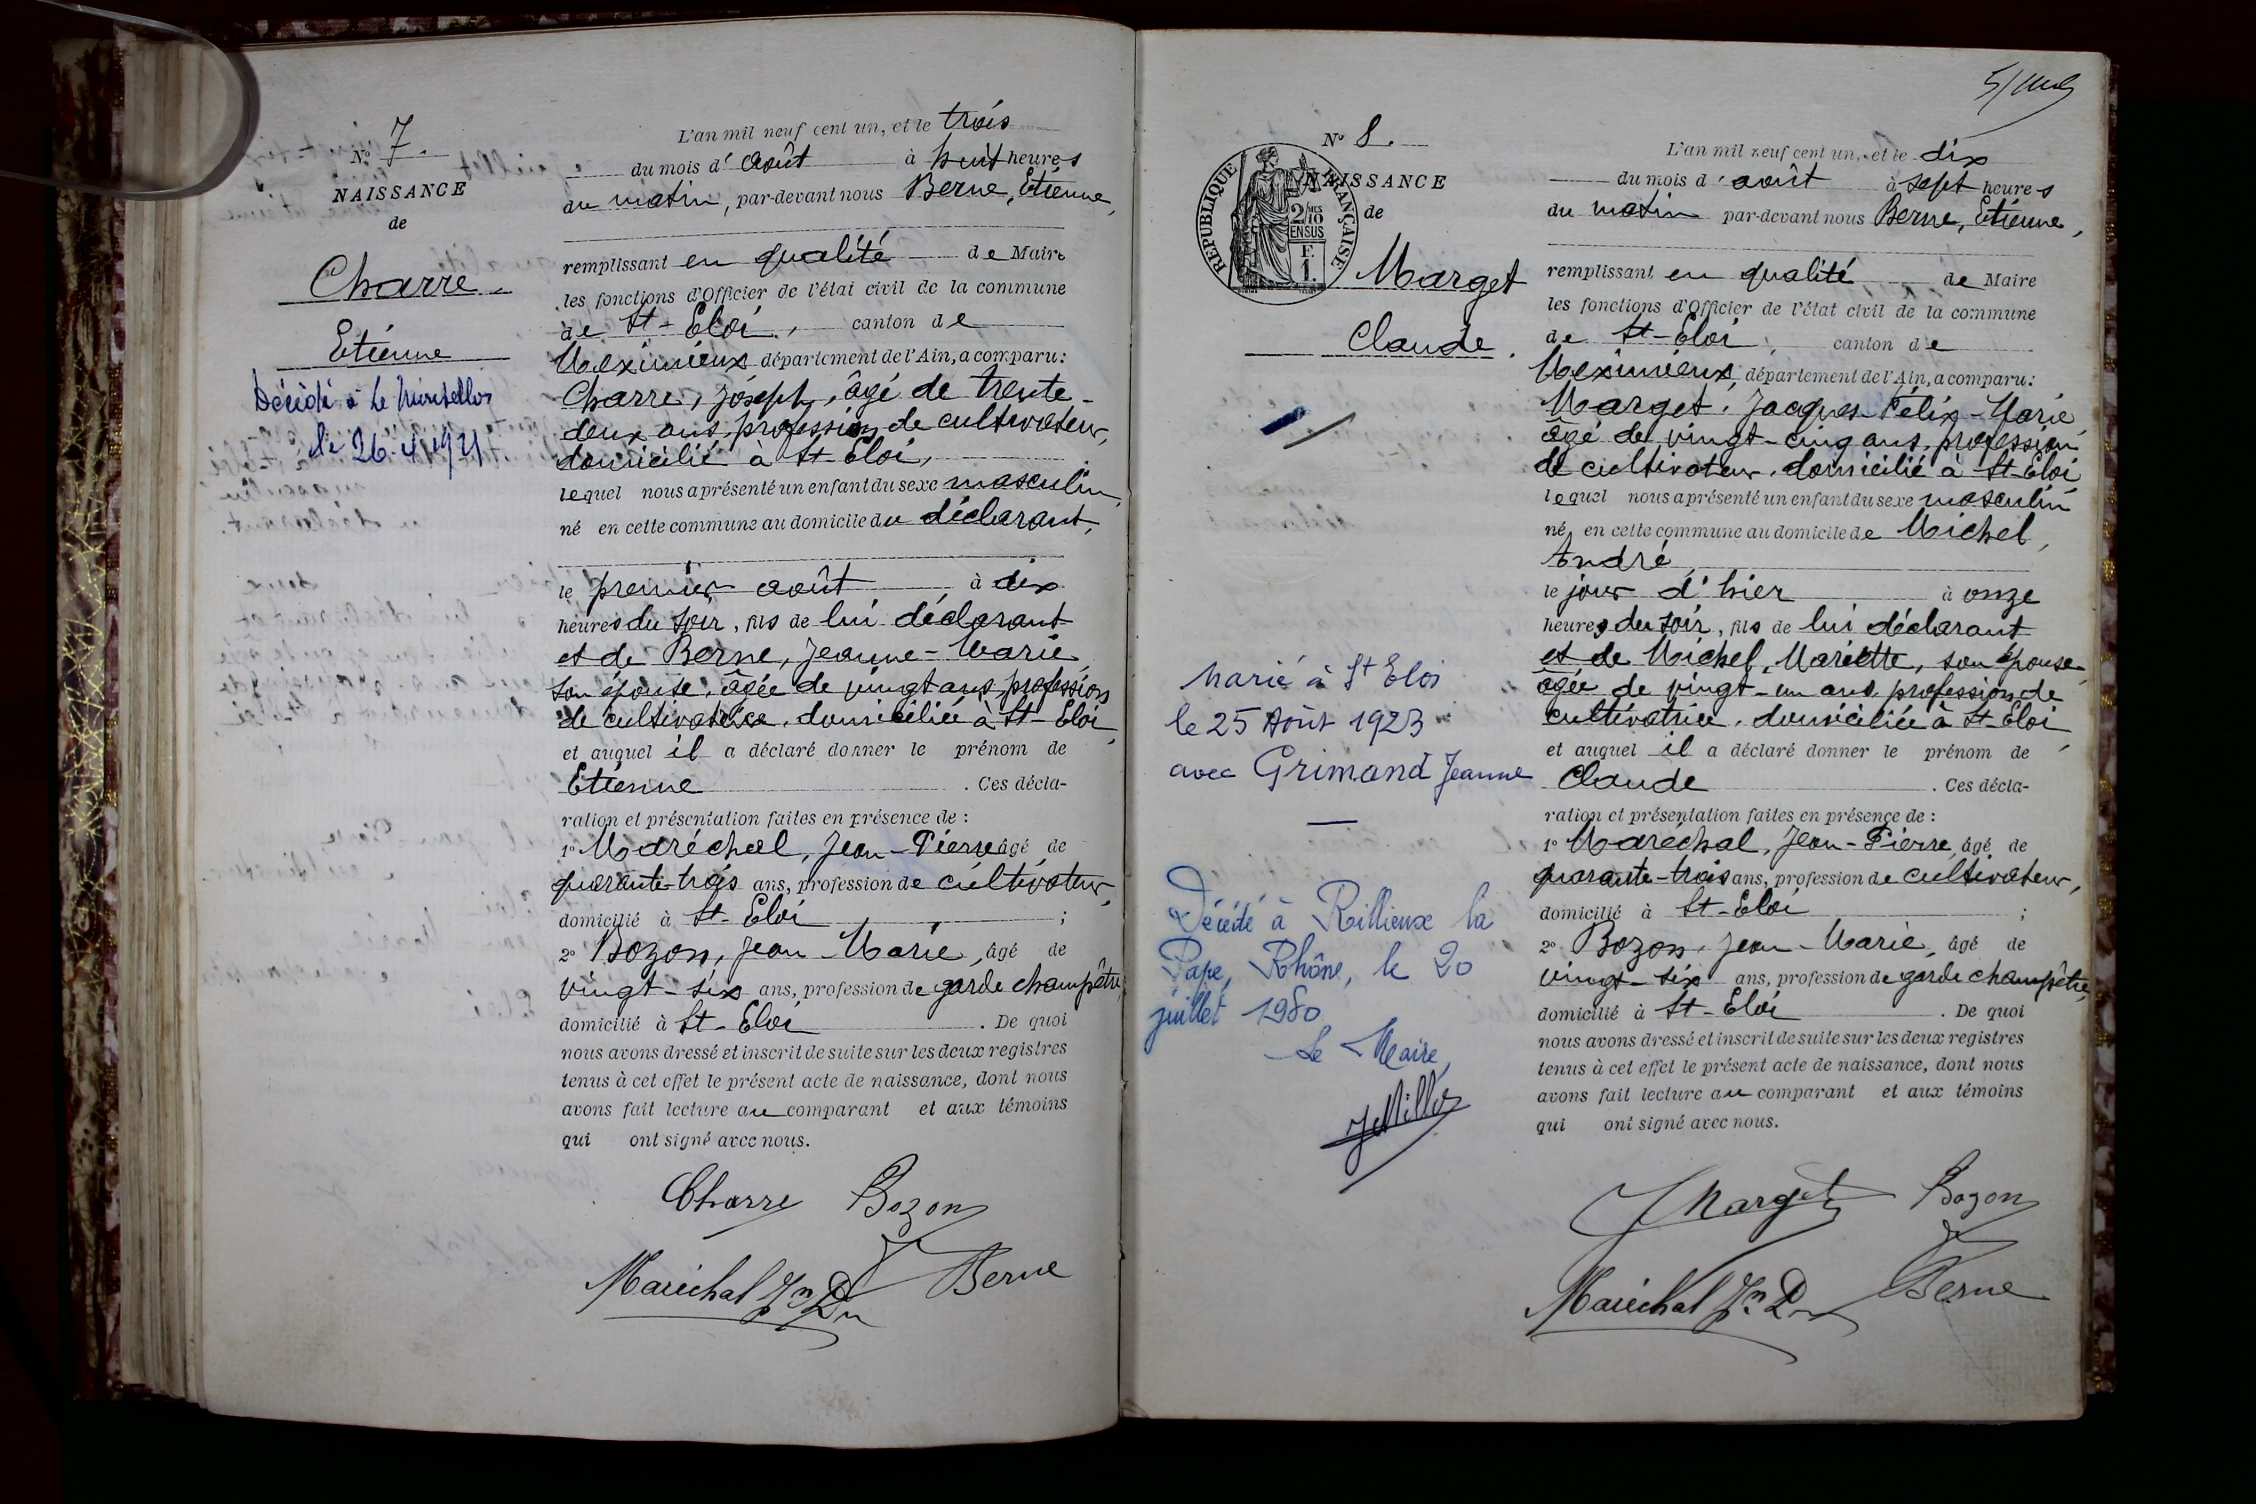 N° 7.
NAISSANCE
de
Charre
Etienne
Décédé à Le
le 26.4.1971.
L'an mil neuf cent un, et le trois
du mois d'août à huit heures
du matin, par-devant nous Berne, Etienne,
remplissant en qualité de Maire
les fonctions d'Officier de l'état civil de la commune
de St-Eloi, canton de
Meximieux département de l'Ain, a comparu:
Charre, Joseph, âgé de trente-
deux ans, profession de cultivateur,
domicilié à St-Eloi,
lequel nous a présenté un enfant du sexe masculin
né en cette commune au domicile du déclarant,
le premier août à dix
heures du soir, fils de lui déclarant
et de Berne, Jeanne-Marie,
son épouse, âgée de vingt ans, profession
de cultivatrice, domiciliée à St-Eloi,
et auquel il a déclaré donner le prénom de
Etienne. Ces décla-
ration et présentation faites en présence de :
1° Maréchal, Jean-Pierre âgé de
quarante-trois ans, profession de cultivateur,
domicilié à St-Eloi ;
2° Bozon, Jean-Marie, âgé de
vingt-six ans, profession de garde champêtre,
domicilié à St-Eloi. De quoi
nous avons dressé et inscrit de suite sur les deux registres
tenus à cet effet le présent acte de naissance, dont nous
avons fait lecture au comparant et aux témoins
qui ont signé avec nous.
Charre Bozon
Maréchal Jn Berne
N° 8.
REPUBLIQUE FRANÇAISE
2/10 EN SUS
F. 1.
NAISSANCE
de
Marget
Claude.
Marié à St Eloi
le 25 Août 1923
avec Grimand Jeanne
Décédé à Rillieux la
Pape, Rhône, le 20
juillet 1980
Le Maire,
L'an mil neuf cent un, et le dix
du mois d'août à sept heures
du matin par-devant nous Berne, Etienne,
remplissant en qualité de Maire
les fonctions d'Officier de l'état civil de la commune
de St-Eloi, canton de
Meximieux, département de l'Ain, a comparu:
Marget, Jacques Félix-Marie
âgé de vingt-cinq ans, profession
de cultivateur, domicilié à St-Eloi
lequel nous a présenté un enfant du sexe masculin
né en cette commune au domicile de Michel,
André,
le jour d'hier à onze
heures du soir, fils de lui déclarant
et de Michel, Mariette, son épouse,
âgée de vingt-un ans, profession de
cultivatrice, domiciliée à St-Eloi,
et auquel il a déclaré donner le prénom de
Claude. Ces décla-
ration et présentation faites en présence de :
1° Maréchal, Jean-Pierre, âgé de
quarante-trois ans, profession de cultivateur,
domicilié à St-Eloi ;
2° Bozon, Jean-Marie, âgé de
vingt-six ans, profession de garde champêtre,
domicilié à St-Eloi. De quoi
nous avons dressé et inscrit de suite sur les deux registres
tenus à cet effet le présent acte de naissance, dont nous
avons fait lecture au comparant et aux témoins
qui ont signé avec nous.
J Marget Bozon
Maréchal Jn Berne